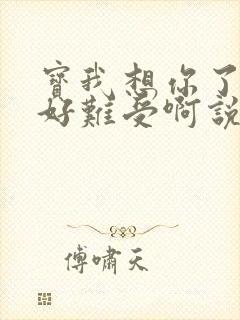 寶我想你了
好難受啊說
傅嘯天